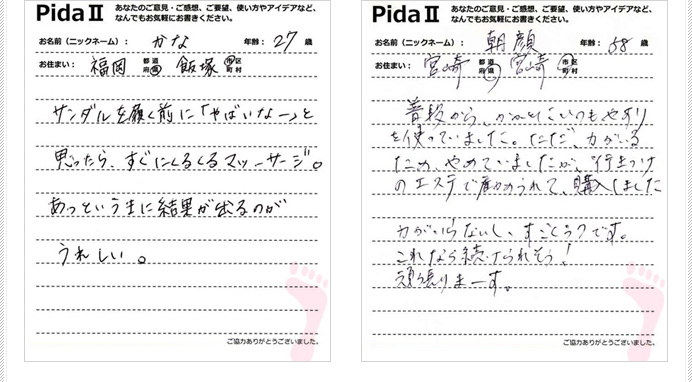 Pida II
あなたのご意見・ご感想、ご要望、使い方やアイデアなど、
なんでもお気軽にお書きください。
お名前（ニックネーム）： かな 年齢： 27 歳
お住まい： 福岡 都道府県 飯塚 市区町村
サンダルを履く前に「やばいなー」と
思ったら、すぐにくるくるマッサージ。
あっというまに結果が出るのが
うれしい。
ご協力ありがとうございました。
Pida II
あなたのご意見・ご感想、ご要望、使い方やアイデアなど、
なんでもお気軽にお書きください。
お名前（ニックネーム）： 朝顔 年齢： 58 歳
お住まい： 宮崎 都道府県 宮崎 市区町村
普段から、かかとにいつもやすり
を使っていました。ただ、力がいる
ため、やめていましたが、行きつけ
のエステで広められて、購入しました
力がいらないし、すごくラクです。
これなら続けられそう！
頑張りまーす。
ご協力ありがとうございました。